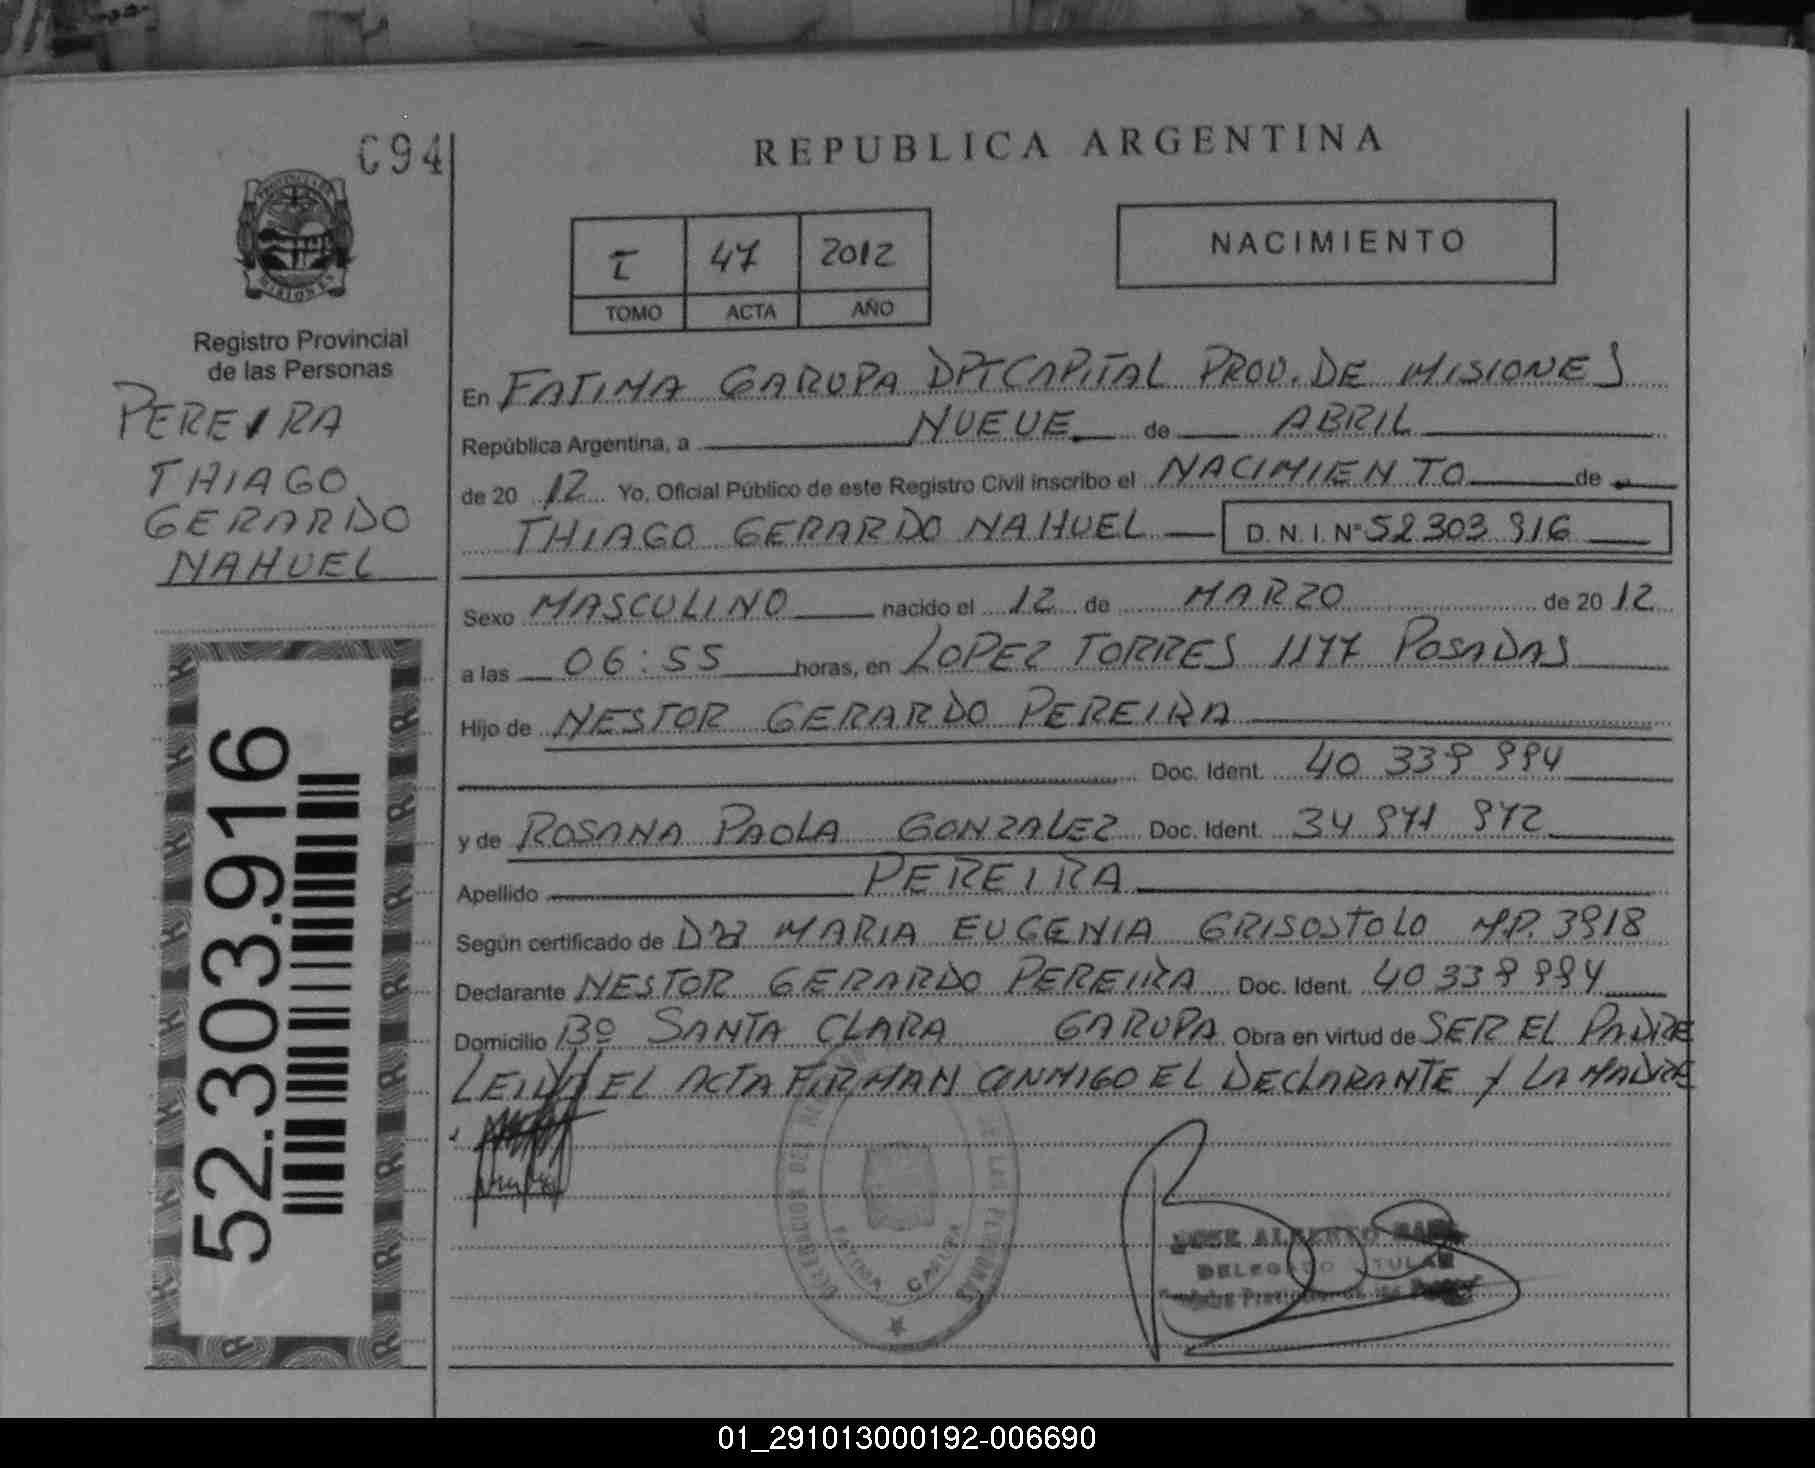 C94
REPUBLICA ARGENTINA
PROVINCIA DE
MISIONES
Registro Provincial
de las Personas
PEREIRA
THIAGO
GERARDO
NAHUEL
52.303.916
I 47 2012
TOMO ACTA AÑO
NACIMIENTO
En FATIMA GARUPA DPT CAPITAL PROV. DE MISIONES
República Argentina, a NUEVE de ABRIL
de 20 12 Yo, Oficial Público de este Registro Civil inscribo el NACIMIENTO de
THIAGO GERARDO NAHUEL D. N. I. Nº 52 303 916
Sexo MASCULINO nacido el 12 de MARZO de 20 12
a las 06:55 horas, en LOPEZ TORRES 1177 POSADAS
Hijo de NESTOR GERARDO PEREIRA
Doc. Ident. 40 339 994
y de ROSANA PAOLA GONZALEZ Doc. Ident. 34 971 972
Apellido PEREIRA
Según certificado de DRA MARIA EUGENIA GRISOSTOLO M.P. 3918
Declarante NESTOR GERARDO PEREIRA Doc. Ident. 40 339 994
Domicilio Bº SANTA CLARA GARUPA Obra en virtud de SER EL PADRE
LEIDA EL ACTA FIRMAN CONMIGO EL DECLARANTE Y LA MADRE
DE LAS PERSONAS
FATIMA GARUPA
JOSE ALBERTO
DELEGADO TITULAR
01_291013000192-006690